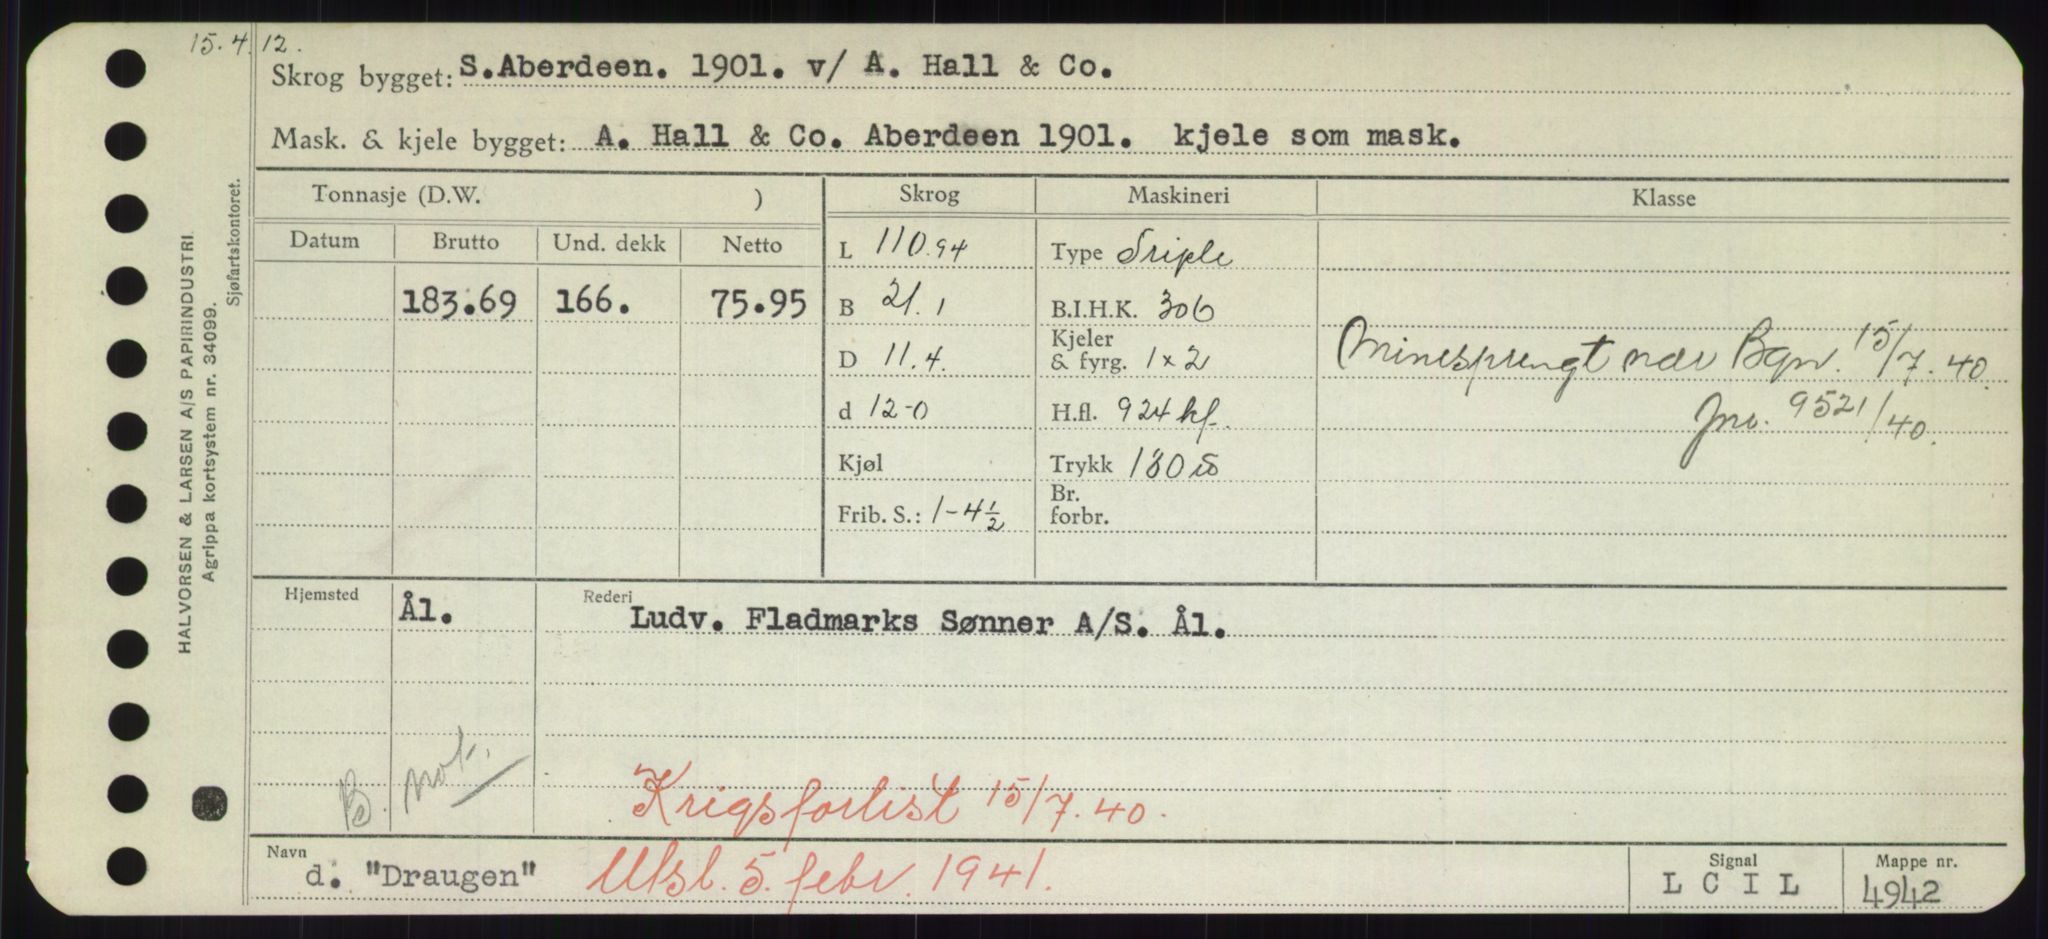 15.4.12.
Skrog bygget: S.Aberdeen. 1901. v/ A. Hall & Co.
Mask. & kjele bygget: A. Hall & Co. Aberdeen 1901. kjele som mask.
Tonnasje (D.W. ) Skrog Maskineri Klasse
Datum Brutto Und. dekk Netto
L 110.94 Type Triple
183.69 166. 75.95 B 21.1 B.I.H.K. 306
D 11.4. Kjeler & fyrg. 1×2 Minesprengt nær Bgn. 15/7.40.
d 12-0 H.fl. 924 kf. Jnr. 9521/40.
Kjøl Trykk 180 lb
Frib. S.: 1-4½ Br. forbr.
Hjemsted Ål. Rederi Ludv. Fladmarks Sønner A/S. Ål.
B. not.
Krigsforlist 15/7.40.
Navn d. "Draugen" Utsl. 5. febr. 1941.
Signal L C I L
Mappe nr. 4942
HALVORSEN & LARSEN A/S PAPIRINDUSTRI
Agrippa kortsystem nr. 34099.
Sjøfartskontoret.